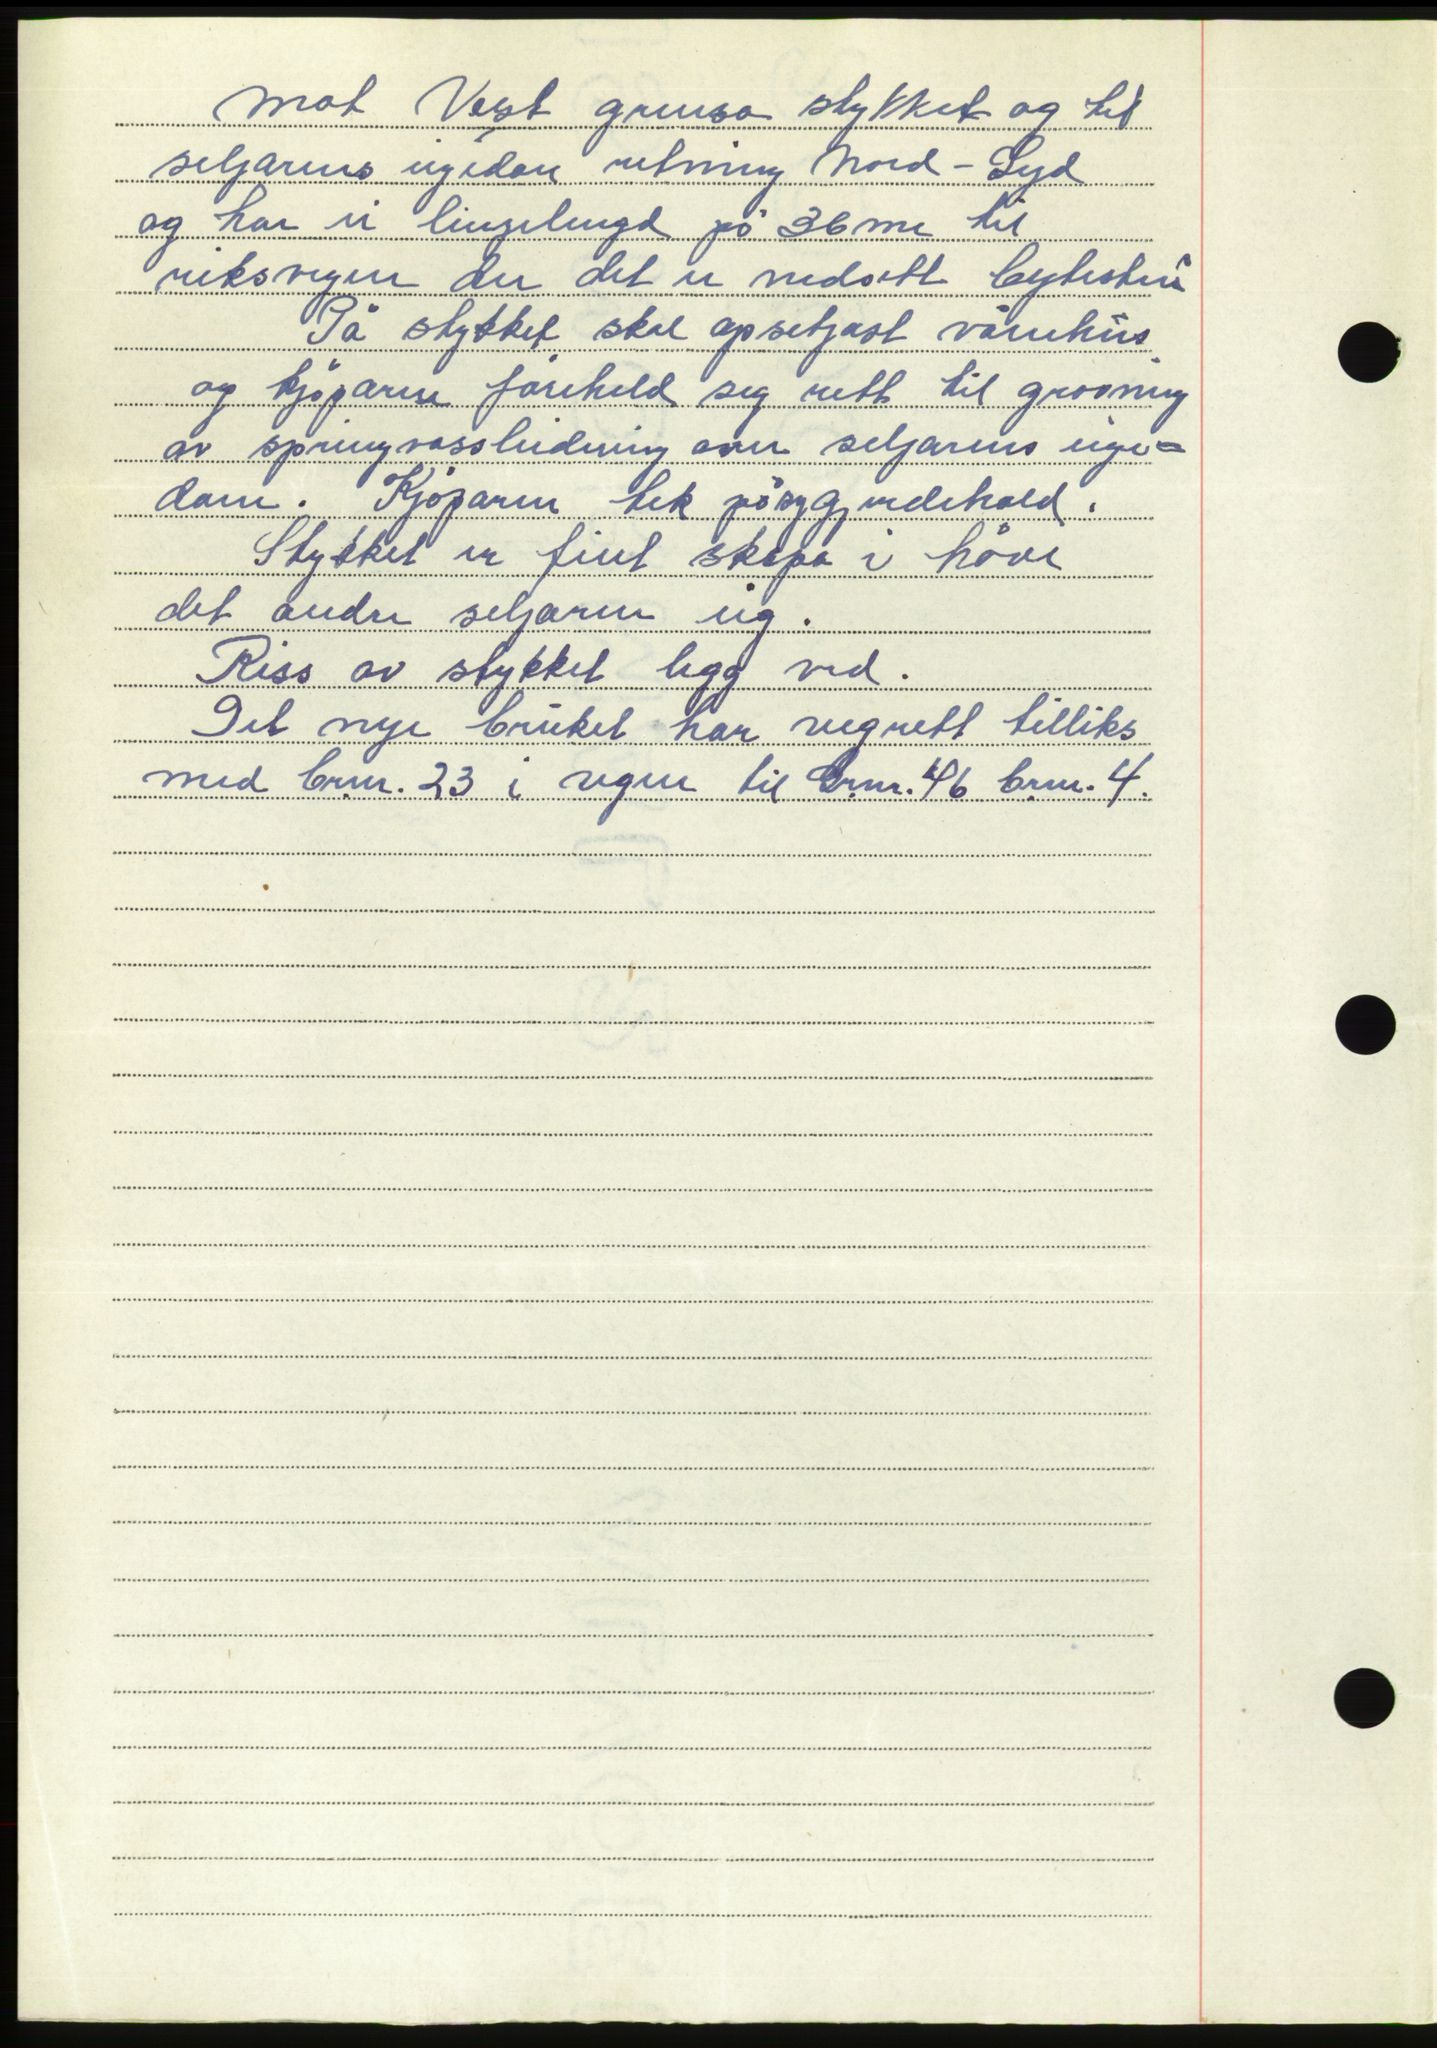 Mot Vest grensa stykket og til
seljarens eigedom retning Nord - Syd
og har ei linjelengd på 36 m til
riksvegen der det er nedsett bytestein
På stykket skal opsetjast vånehus
og kjöparen föreheld seg rett til grovning
av springvassleidning over seljarens eige=
dom. Kjöparen tek på seg gjerdehald.
Stykket er fint skapa i höve
det andre seljaren eig.
Riss av stykket legg ved.
Det nye bruket har vegrett tilliks
med br.nr. 23 i vegen til gr.nr. 46 br.nr. 4.